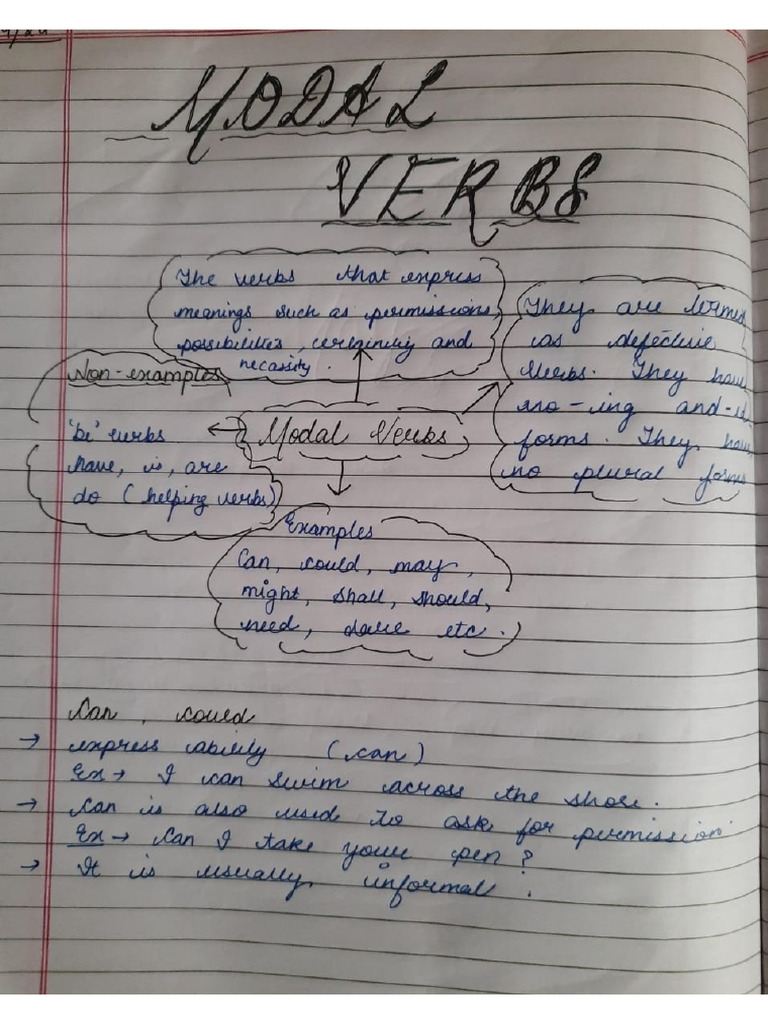 MODAL
VERBS
The verbs that express
meanings such as permissions,
possibilities, and
necassity.
They are termed
as defective
Verbs. They have
no -ing and -ed
forms. They have
no plural forms
Non-examples
'be' verbs
have, is, are
do (helping verbs)
Modal Verbs
Examples
Can, could, may,
might, shall, should,
need, dare etc.
Can, could
→ express ability (can)
Ex → I can swim across the shore.
→ Can is also used to ask for permission
Ex → Can I take your pen?
→ It is usually informal.